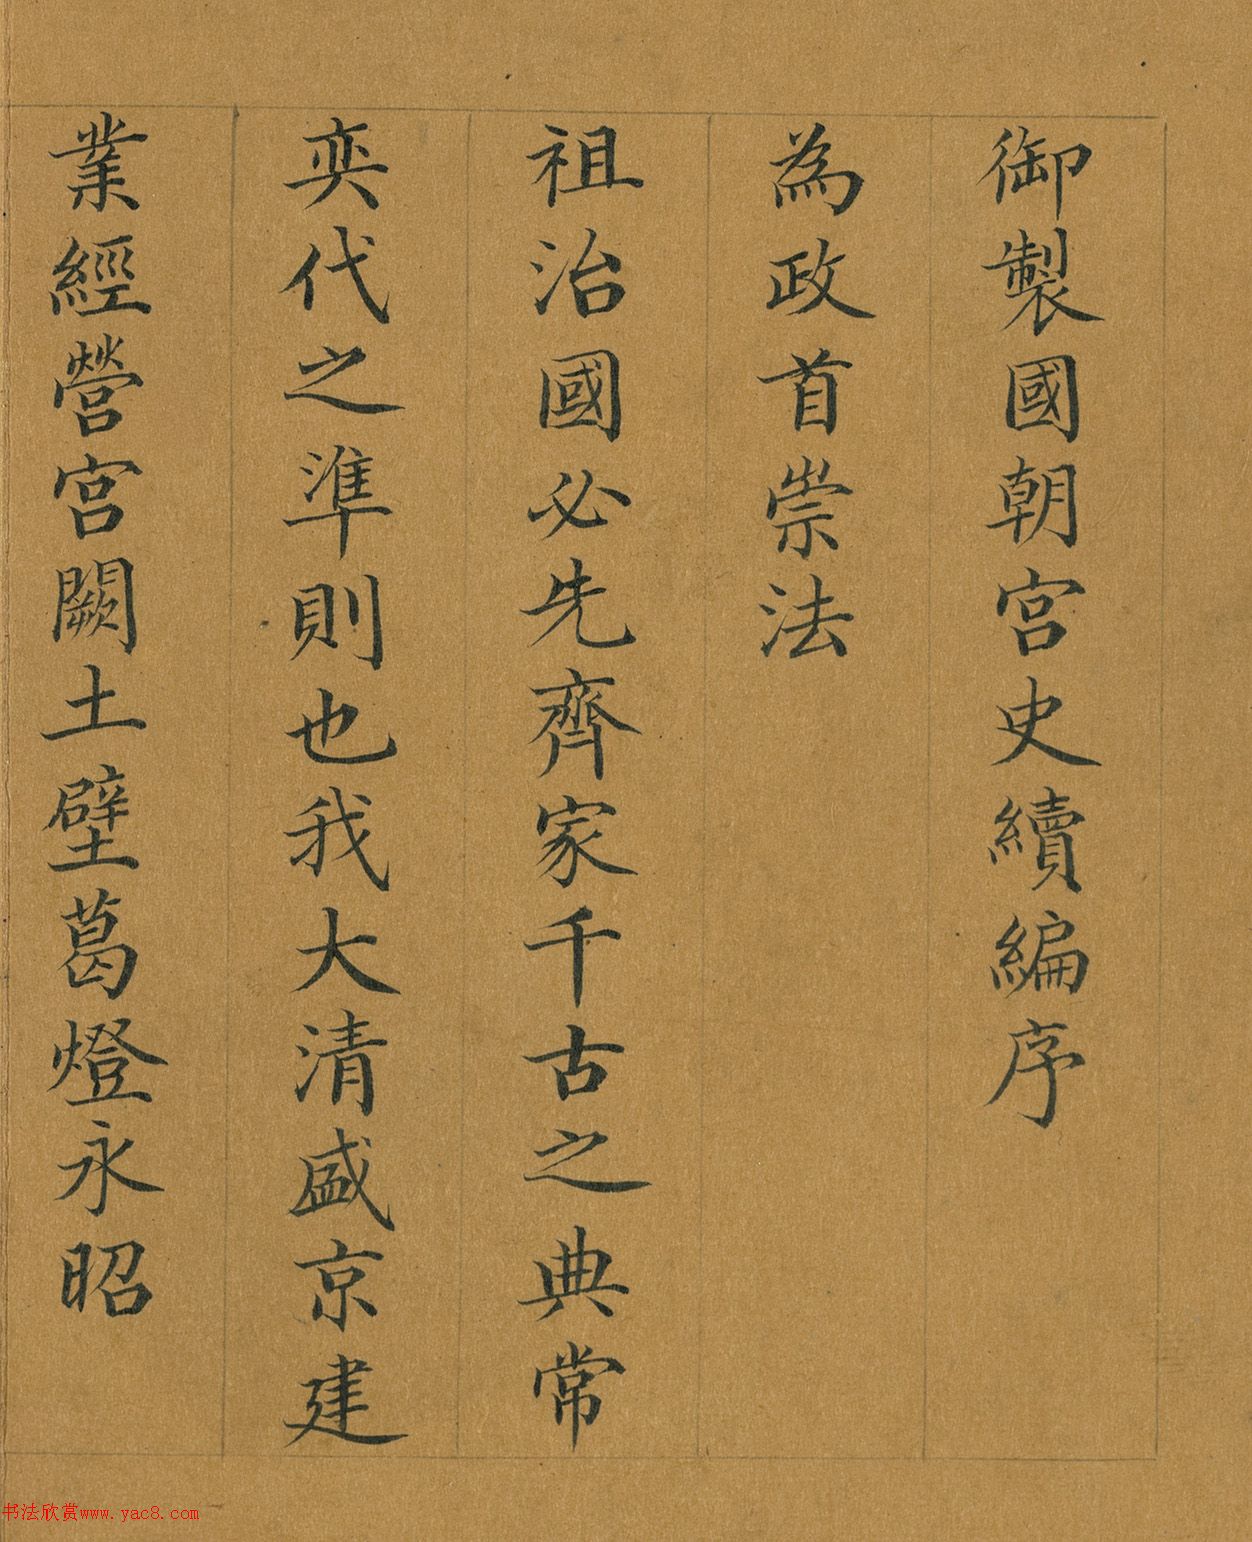 御製國朝宮史續編序
為政首崇法
祖治國必先齊家千古之典常
奕代之準則也我大清盛京建
業經營宮闕土壁葛燈永昭
书法欣赏www.yac8.com